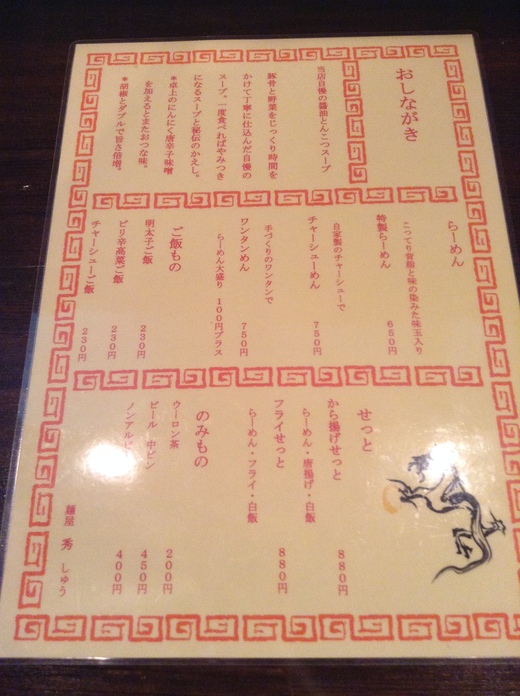 おしながき
当店自慢の醤油とんこつスープ
豚骨と野菜をじっくり時間を
かけて丁寧に仕込んだ自慢の
スープ。一度食べればやみつき
になるスープと秘伝のかえし。
*卓上のにんにく唐辛子味噌
を加えるとまたおつな味。
*胡椒とダブルで旨さ倍増。
らーめん
こってり背脂と味の染みた味玉入り
特製らーめん 650円
自家製のチャーシューで
チャーシューめん 750円
手づくりのワンタンで
ワンタンめん 750円
らーめん大盛り 100円プラス
ご飯もの
明太子ご飯 230円
ピリ辛高菜ご飯 230円
チャーシューご飯 230円
せっと
から揚げせっと 880円
らーめん・唐揚げ・白飯
フライせっと 880円
らーめん・フライ・白飯
のみもの
ウーロン茶 200円
ビール 中ビン 450円
ノンアルビ 400円
麺屋 秀 しゅう